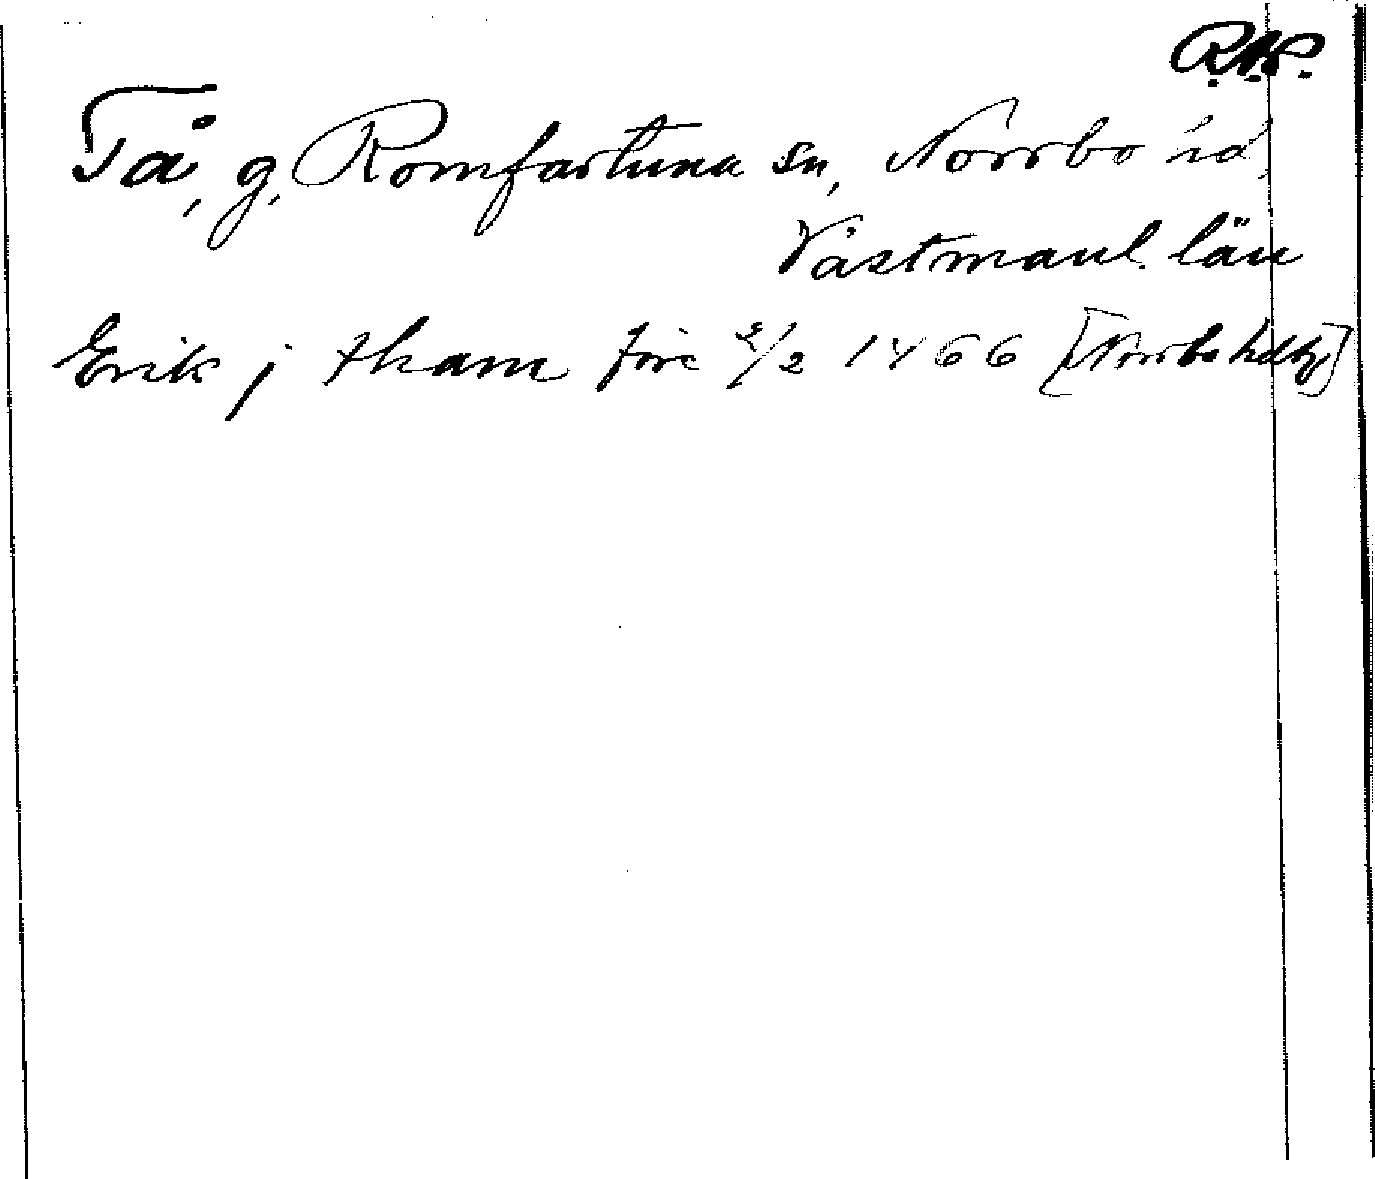 R.A.P.
Tå, g, Romfartuna sn, Norrbo hd,
Västmanl. län
Erik j tham före 2/2 1466 [Norrbo hdtg]